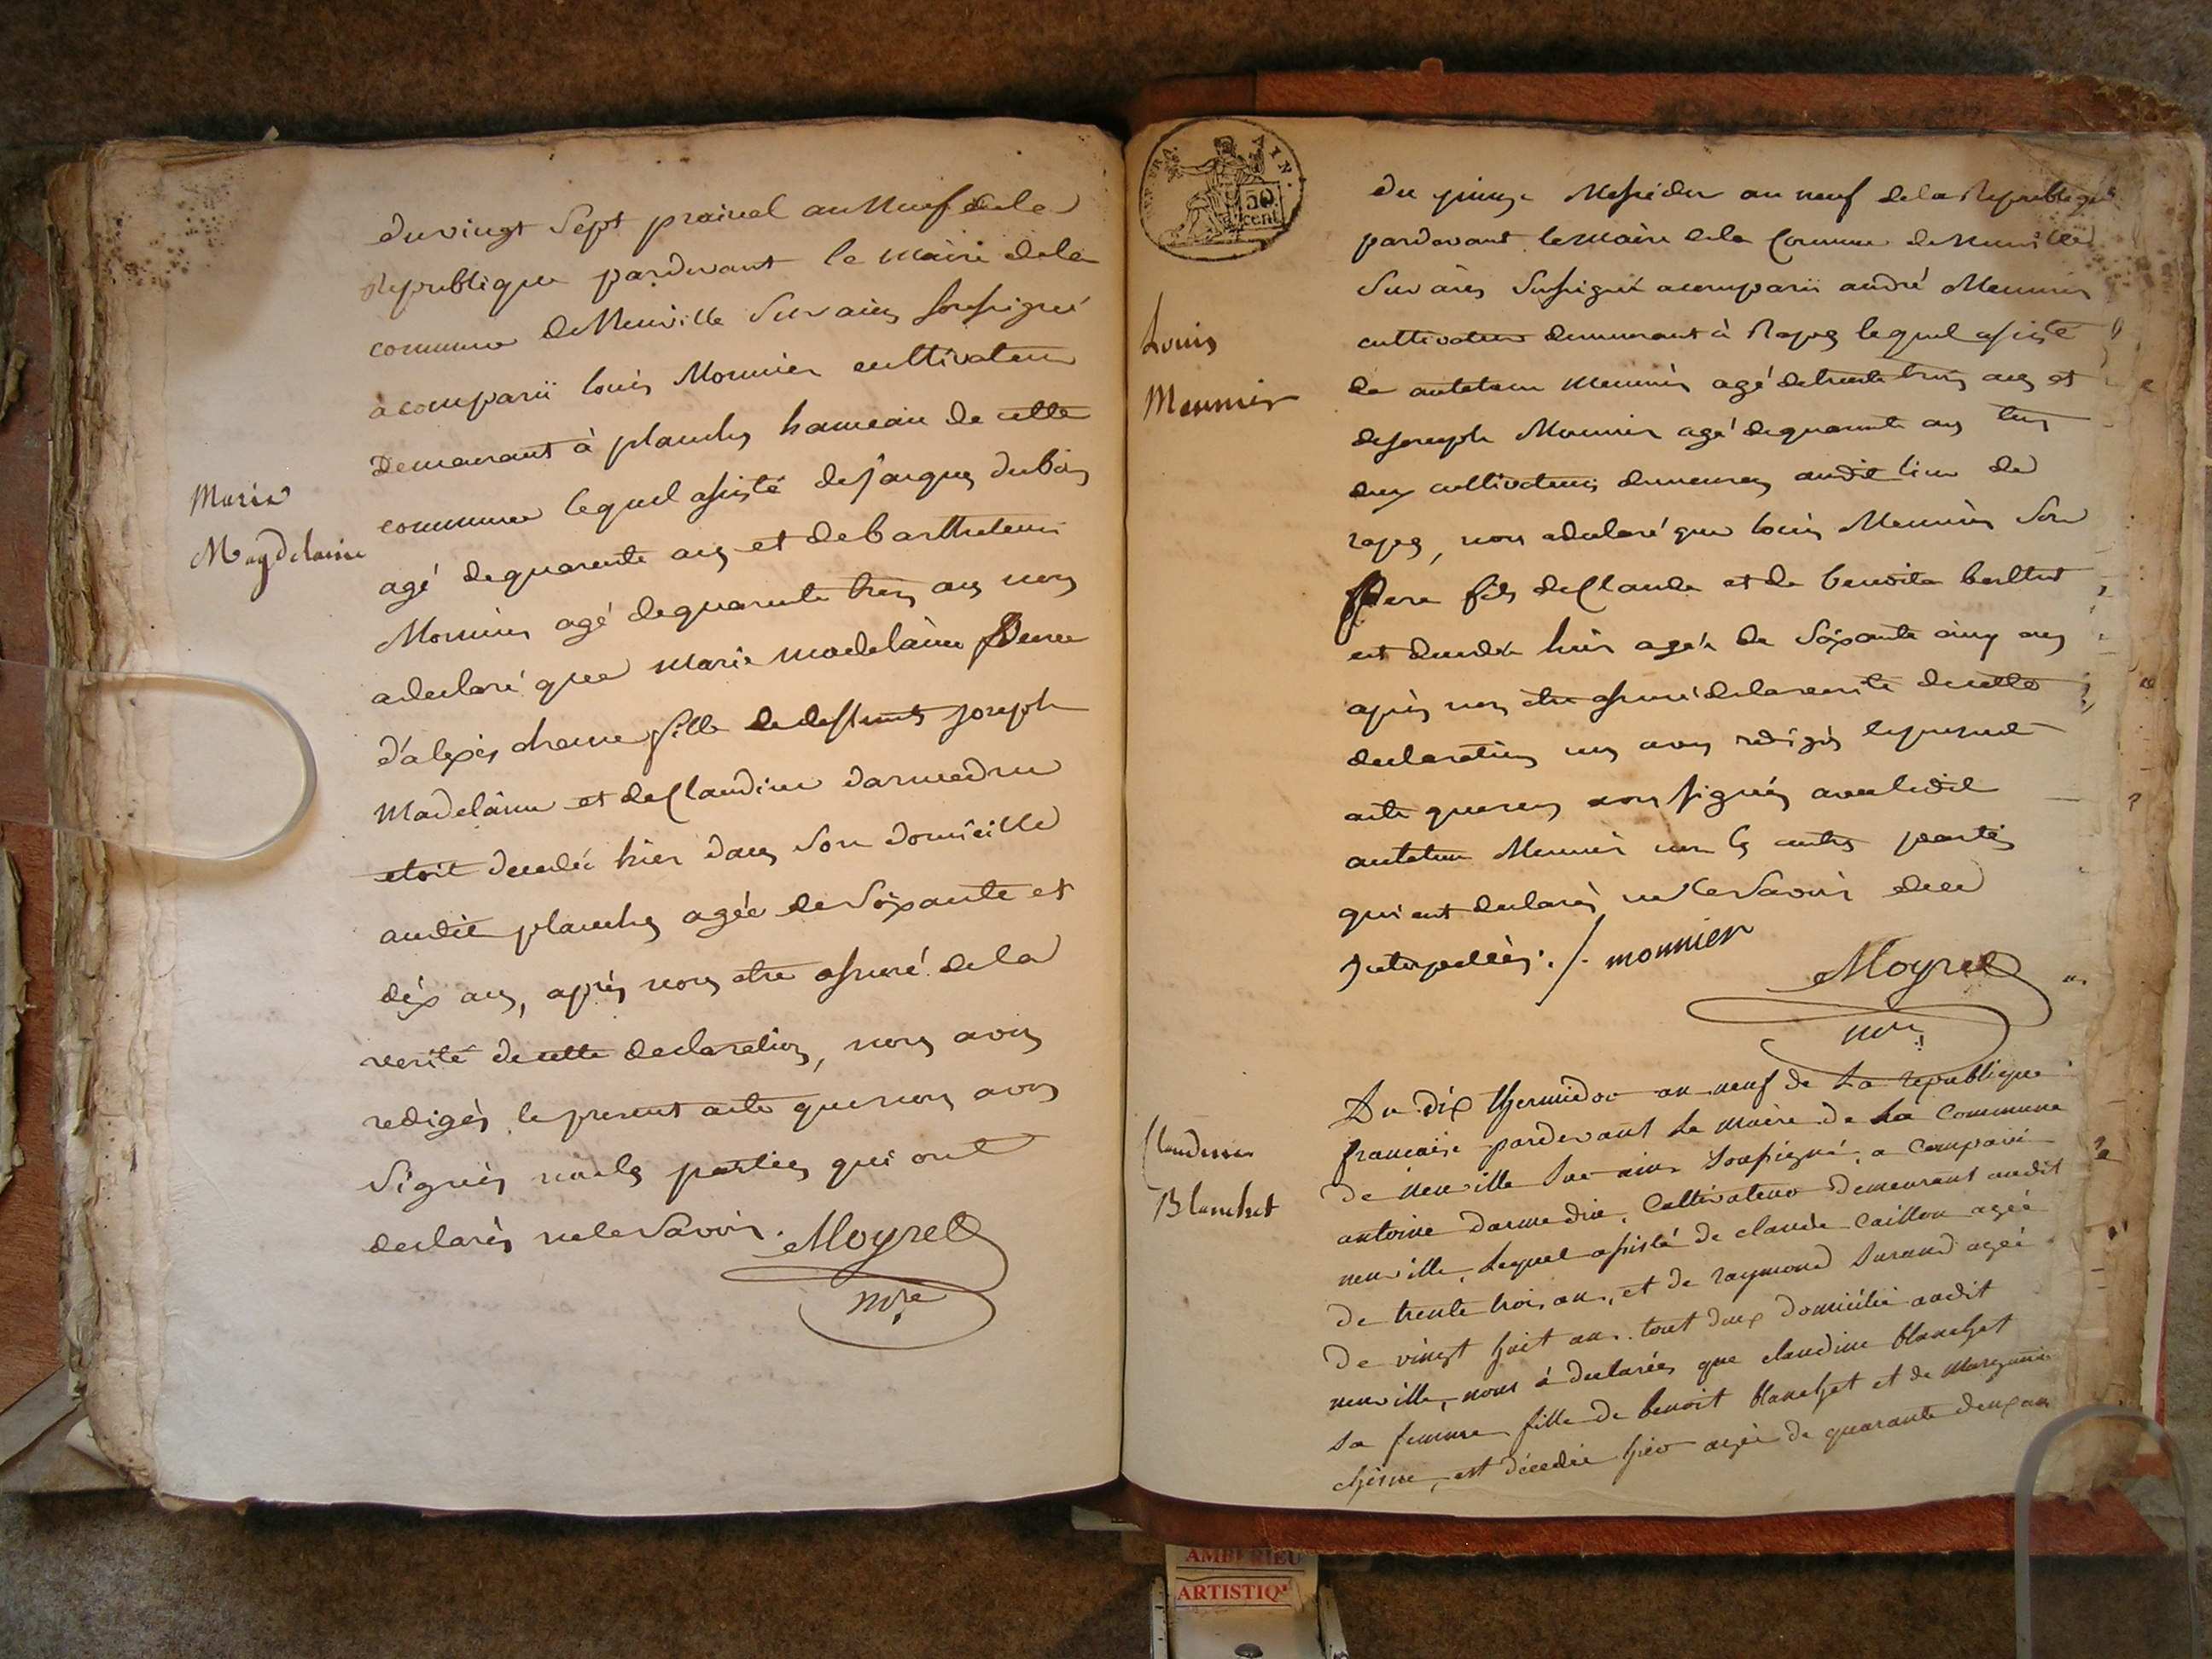 Marie
Magdelaine
du vingt Sept prairial an Neuf de la
Republique pardevant le maire de la
commune de Neuville Sur ains soussigné
a comparu louis Monnier cultivateur
Demeurant à planches hameau de cette
commune lequel assisté de jacques dubois
agé de quarante ans et de barthelemi
Monnier agé de quarante trois ans nous
a declaré que marie madelaine veuve
d'alexis chanel fille de deffunts joseph
Madelaine et de Claudine darmedru
etoit decedée hier dans Son domicille
audit planches agée de Soixante et
dix ans, après nous etre assuré de la
verité de cette declaration, nous avons
redigés le present acte que nous avons
Signés non les parties qui ont
declarés ne le Savoir. Moyret
mre
REP. FRA. AIN.
50
cent.
Louis
Meunier
du quinze Messidor an neuf de la Republique
pardevant le maire de la Commune de Neuville
Sur ains Sussigné a comparu andré Meunier
cultivateur demeurant à Rapes lequel assisté
de Meunier agé de trente trois ans et
de joseph Monnier agé de quarante ans tous
deux cultivateurs demeurans audit lieu de
rapes, nous a declaré que louis Meunier Son
Pere fils de Claude et de benoite
est decedé hier agé de Soixante cinq ans
après nous etre assuré de la verité de cette
declaration nous avons redigés le present
acte que nous avons signés avec ledit
Meunier non les autres parties
qui ont declarés ne le Savoir de ce
Interpellés ./. monnier
Moyret
mre
Claudine
Blanchet
Du dix thermidor an neuf de La republique
francaise pardevant Le maire de La Commune
de neuville Sur ains Soussigné, a Comparu
antoine Darmedru, Cultivateur Demeurant audit
neuville, Lequel assisté de claude Caillon agée
de trente trois ans, et de raymond Durand agée
de vingt huit ans. tout deux domicilié audit
neuville, nous à declarées que claudine blanchet
sa femme fille de benoit blanchet et de
est décedée hier agée de quarante deux ans
AMBERIEU
ARTISTIQ